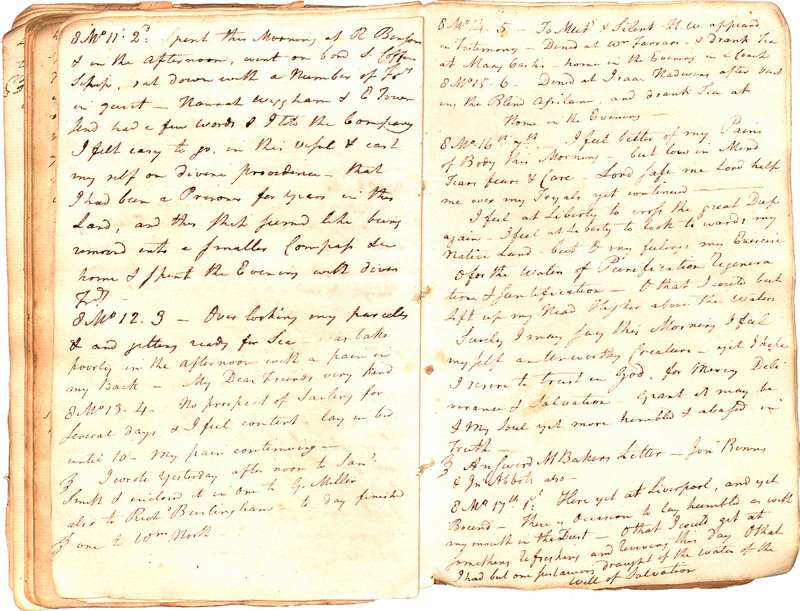 8 Mo 11: 2d. Spent this Morning at R Bensons
& in the Afternoon, went on bord S Coffin
Ship, sat down with a Number of Frds
in quiet — Hannah Wigham & E
had a few words & I told the Company
I felt easy to go, in this vessel & cast
my self on divine providence — that
I had been a Prisoner for years in this
Land, and this Ship seemd like being
removed into a smaller Compass
home & spent the Evening with divers
Frds —
8 Mo 12. 3 — Over looking my parcels
& and getting ready for Sea — was take
poorly in the afternoon with a pain in
my Back — My Dear Friends very kind
8 Mo 13. 4 — No prospect of Sailing for
several days & I feel content — lay in bed
until 10 — my pain continuing —
I wrote Yesterday after noon to Saml.
Smith & inclosed it in one to G. Miller
also to Richd Burlingham — to day finished
one to Wm North —
8 Mo 14. 5 — To Meetg & Silent — H.W. appeard
in Testimony — Dined at Wm Farrars — & drank Tea
at Mary — home in the Evening in a Coach
8 Mo 15. 6 — Dined at Isaac Hadwens, after visit
ing the Blind Asylam, and drank Tea at
Home in the Evening —
8 Mo. 16th 7th. I feel better of my Pain
of Body this Morning — but low in Mind
Tears fears & Care — Lord safe me Lord help
me over my Tryals yet continued —
I feel at Liberty to cross the great Deep
again — I feel at Liberty to look to wards my
Native Land — but O my feelings my Exercise
O for the Water of Purification Regenera
tion & Santification — O that I could but
Lift up my Head Higher above the Waters
Surely I may say this Morning I feel
myself an Unworthy Creature — yet I hope
I desire to trust in God, for Mercy Deli
verance & Salvation — Grant it may be
& My Soul yet more humbled & abased in
Truth —
Answerd M Bakers Letter — Jon Binns
& Jn Abbots also —
8 Mo. 17th 1st Here yet at Liverpool, and yet
Bound — There is Occasion to lay humble as with
my mouth in the Dust — O that I could get at
something Refreshing and reviving this day O that
I had but one draught of the Water of the
Well of Salvation